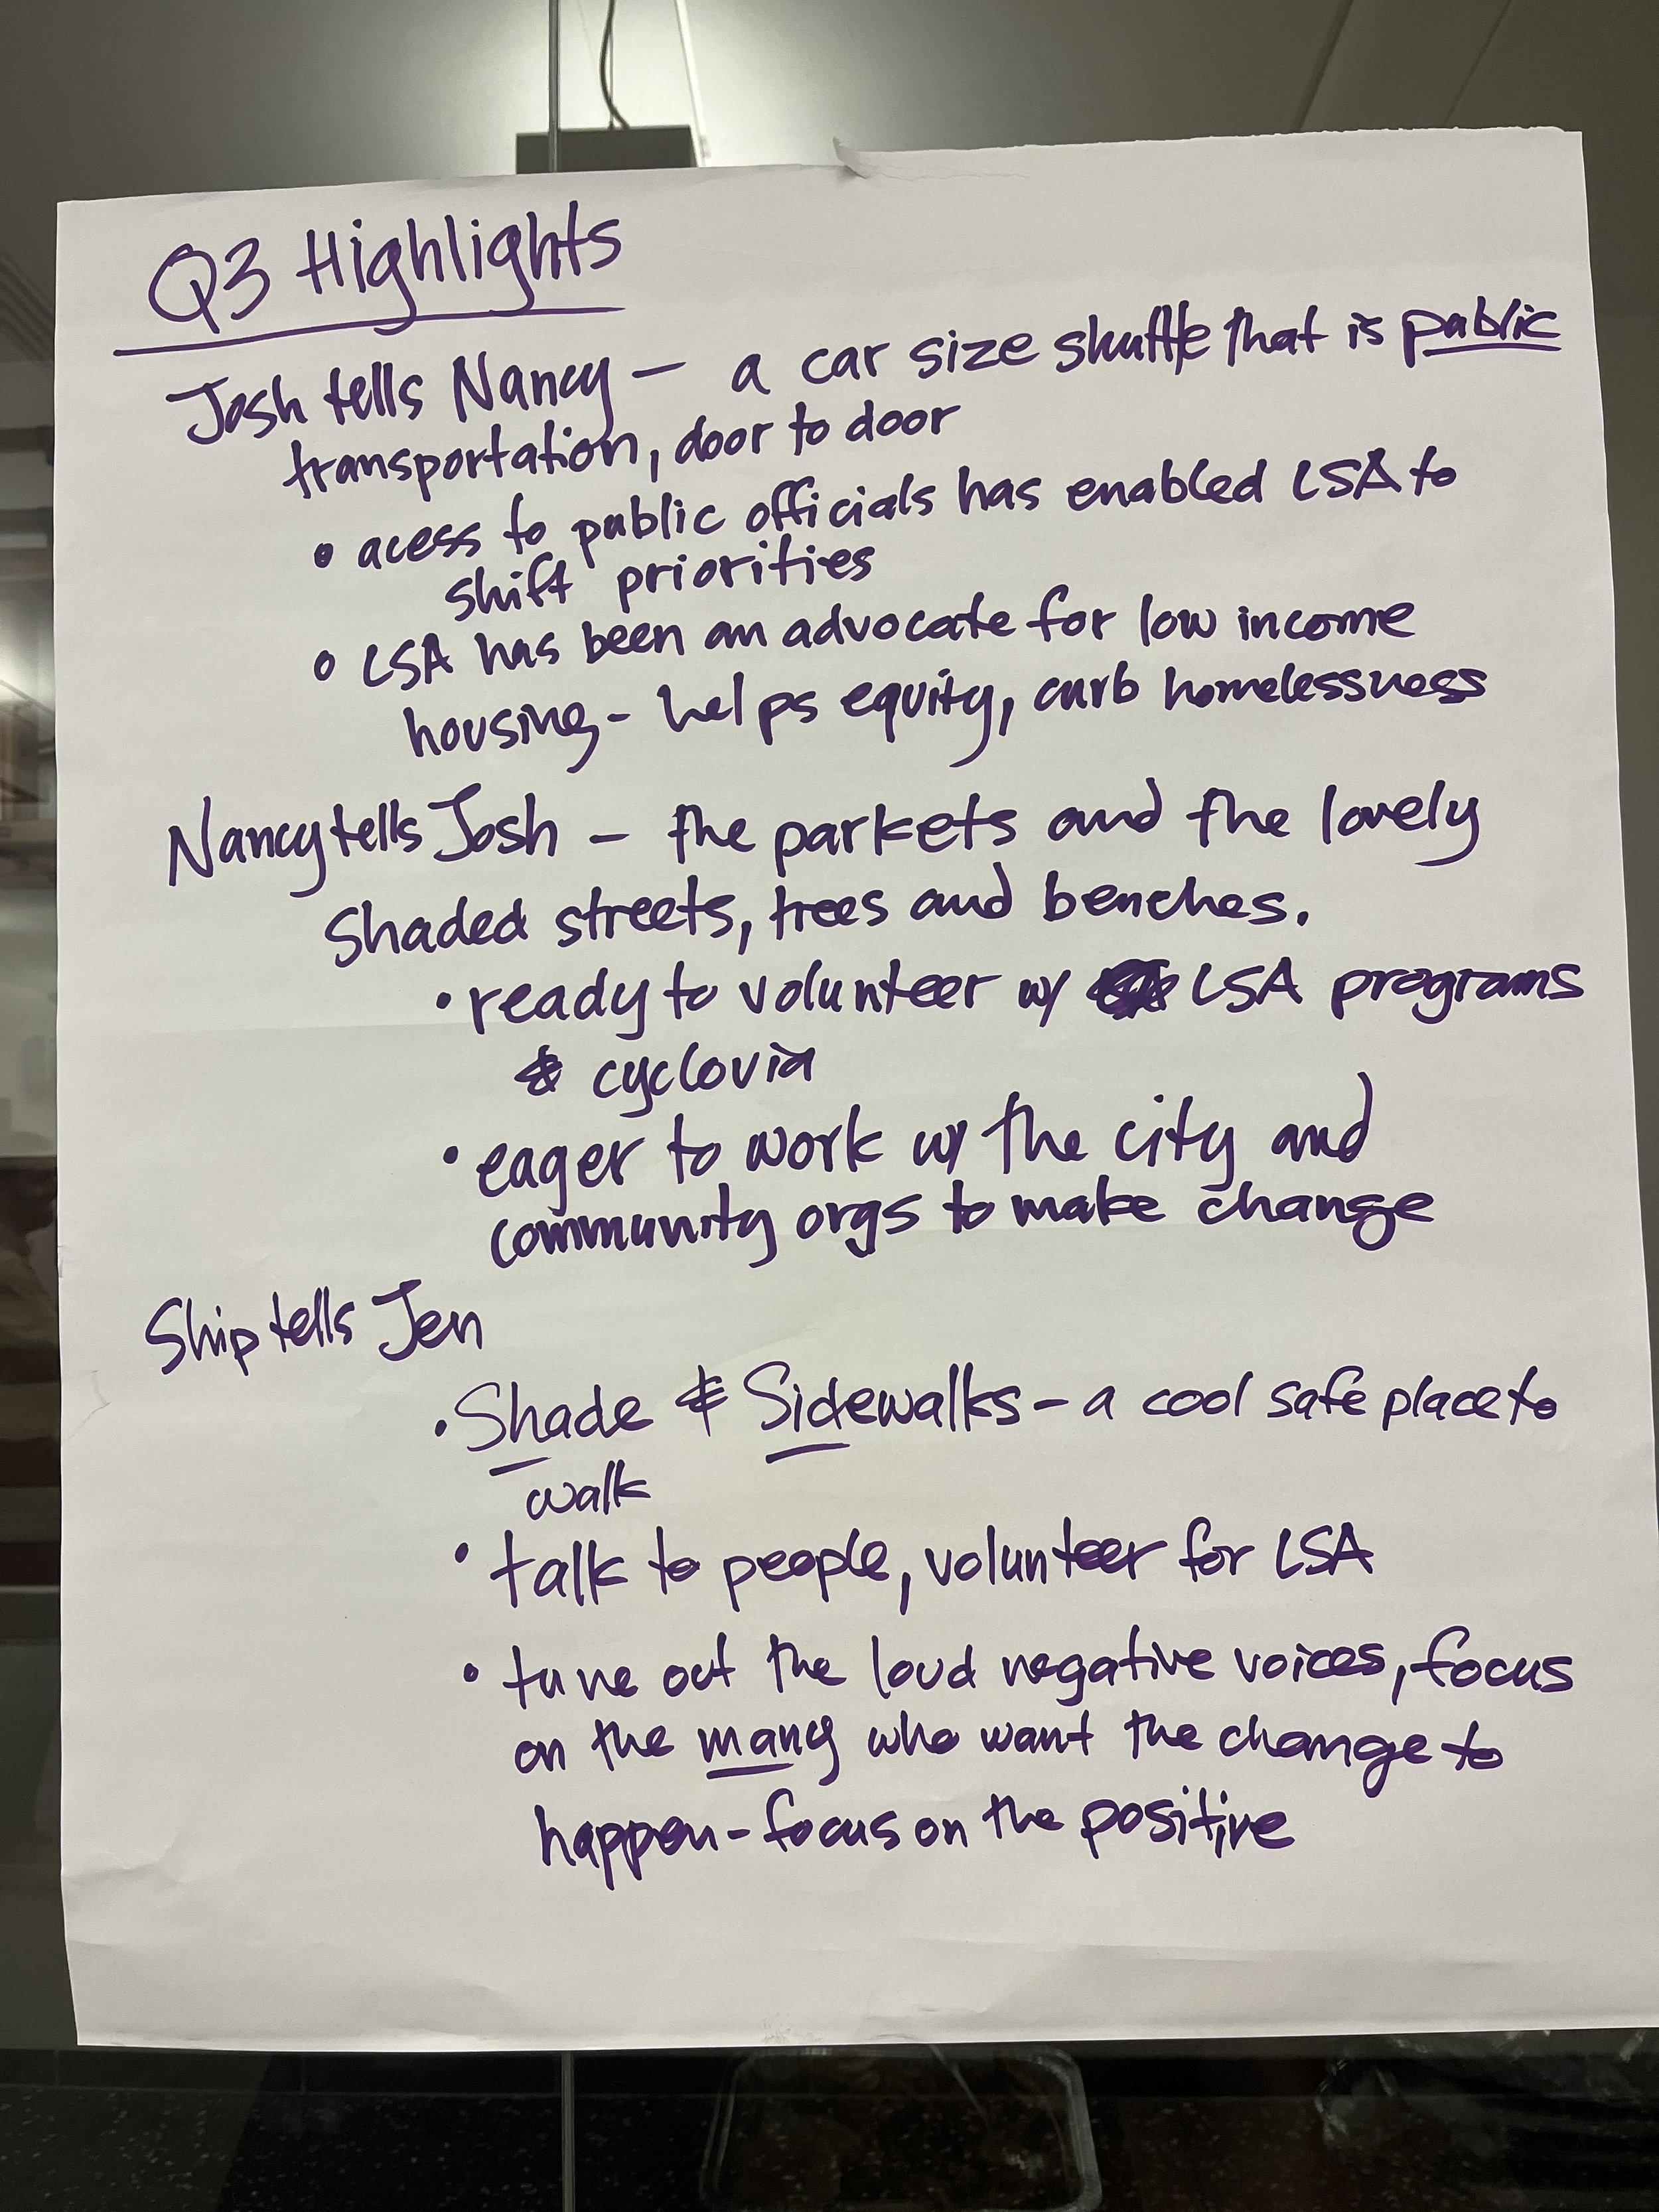 Q3 Highlights
Josh tells Nancy — a car size shuttle that is public
transportation, door to door
• acess to public officials has enabled LSA to
shift priorities
• LSA has been an advocate for low income
housing - helps equity, curb homelessness
Nancy tells Josh - the parkets and the lovely
shaded streets, trees and benches.
• ready to volunteer w/ LSA programs
& cyclovia
• eager to work w/ the city and
community orgs to make change
Ship tells Jen
• Shade & Sidewalks - a cool safe place to
walk
• talk to people, volunteer for LSA
• tune out the loud negative voices, focus
on the many who want the change to
happen - focus on the positive